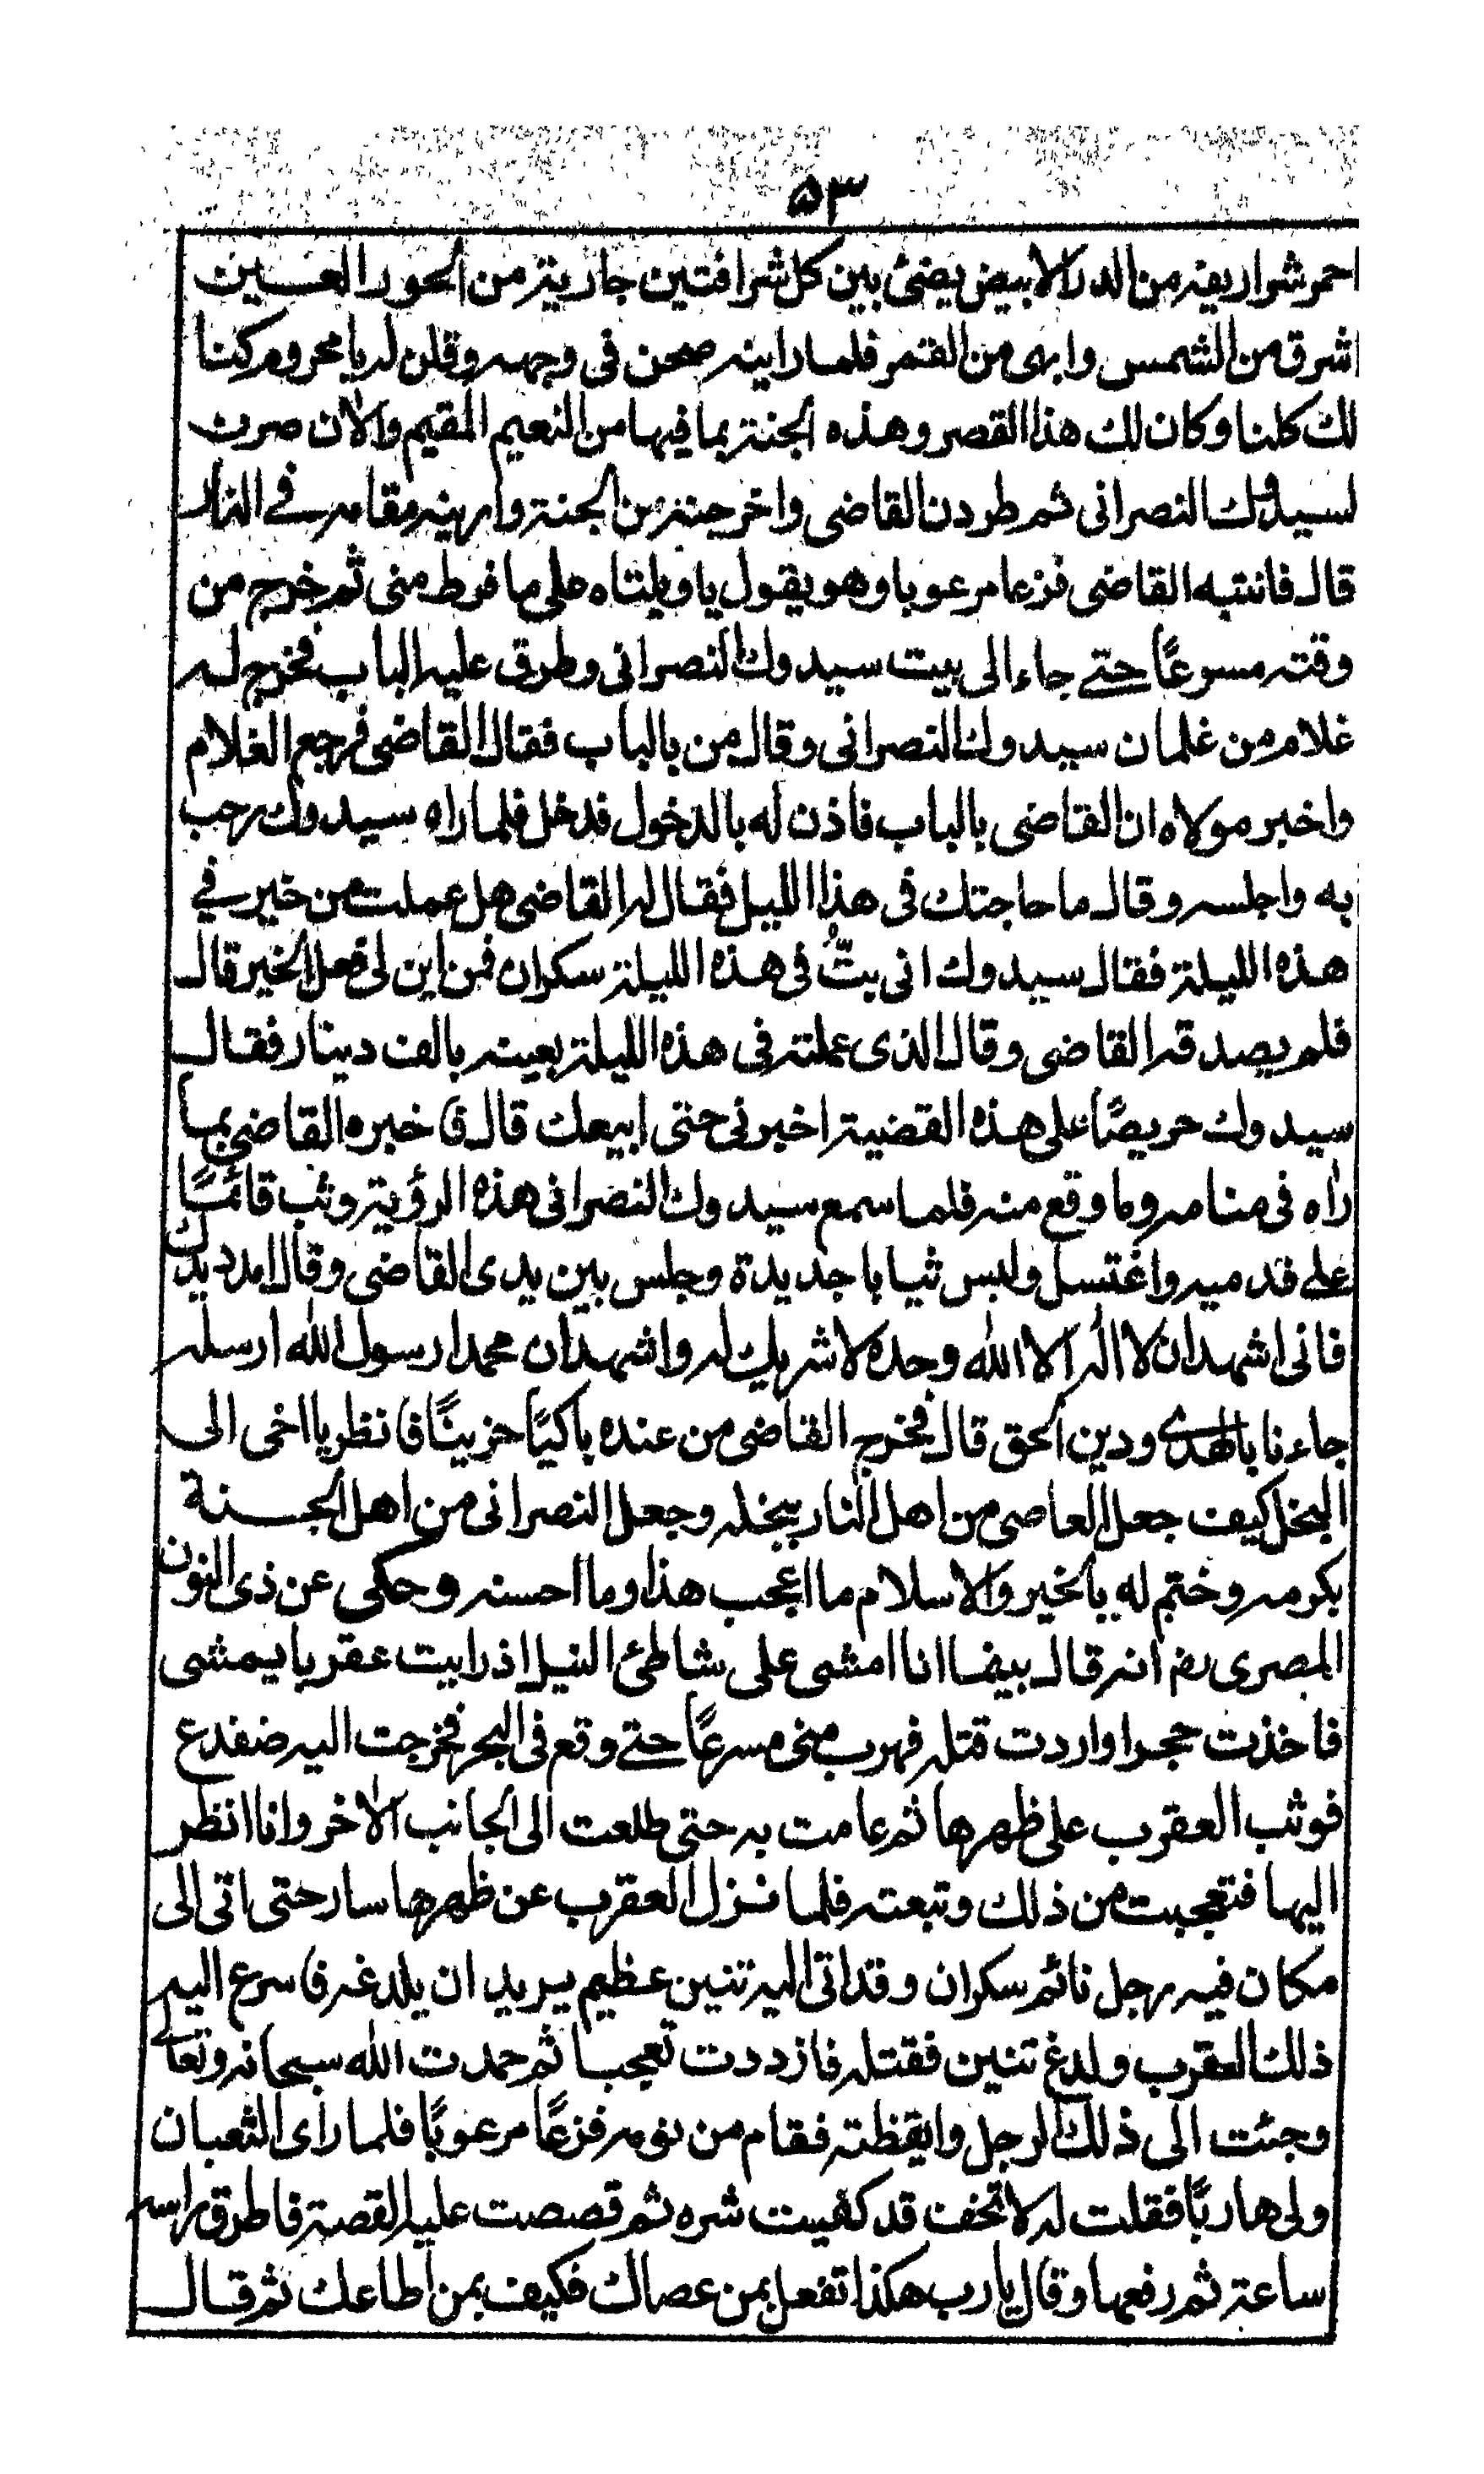 ۵۳
احمر شراريفه من الدر الابيض يضئ بين كل شرافتين جارية من الحور العين
اشرق من الشمس وابهى من القمر فلما راينه صحن فى وجهه وقلن له يا محروم كنا
لك كلنا وكان لك هذا القصر وهذه الجنة بما فيها من النعيم المقيم والان صرت
لسيدوك النصرانى ثم طردن القاضى واخرجنه من الجنة وارينه مقامه فے النار
قال فانتبه القاضى فزعا مرعوبا وهو يقول يا ويلتاه على ما فرط منى ثم خرج من
وقته مسرعًا حتے جاء الى بيت سيدوك النصرانى وطرق عليه الباب فخرج له
غلام من غلمان سيدوك النصرانى وقال من بالباب فقال القاضى فرجع الغلام
واخبر مولاه ان القاضى بالباب فاذن له بالدخول فدخل فلما راه سيدوك رحب
به واجلسه وقال ما حاجتك فى هذا الليل فقال له القاضى هل عملت من خير فے
هذه الليلة فقال سيدوك انى بتُّ فى هذه الليلة سكران فمن اين لى فعل الخير قال
فلم يصدقه القاضى وقال الذى عملته فى هذه الليلة بعينه بالف دينار فقال
سيدوك حريصًا على هذه القضية اخبرنى حتى ابيعك قال فاخبره القاضى بما
راه فى منامه وما وقع منه فلما سمع سيدوك النصرانى هذه الرؤية وثب قائمًا
على قدميه واغتسل ولبس ثيابا جديدة وجلس بين يدى القاضى وقال امدد يدك
فانى اشهد ان لا اله الا الله وحده لا شريك له واشهد ان محمدا رسول الله ارسله
جاءنا بالهدى ودين الحق قال فخرج القاضى من عنده باكيًا حزينًا فانظر يا اخى الى
البخل كيف جعل العاصى من اهل النار ببخله وجعل النصرانى من اهل الجنة
بكرمه وختم له بالخير والاسلام ما اعجب هذا وما احسنه وحكى عن ذى النون
المصرى رضـ انه قال بينما انا امشى على شاطئ النيل اذ رايت عقربا يمشى
فاخذت حجرا واردت قتله فهرب منى مسرعًا حتے وقع فى البحر فخرجت اليه ضفدع
فوثب العقرب على ظهرها ثم عامت به حتى طلعت الى الجانب الاخر وانا انظر
اليها فتعجبت من ذلك وتبعته فلما نزل العقرب عن ظهرها سار حتى اتى الى
مكان فيه رجل نائم سكران وقد اتى اليه تنين عظيم يريد ان يلدغه فاسرع اليه
ذلك العقرب ولدغ تنين فقتله فازددت تعجبا ثم حمدت الله سبحانه وتعالے
وجئت الى ذلك الرجل وايقظته فقام من نومه فزعًا مرعوبًا فلما راى الثعبان
ولى هاربًا فقلت له لا تخف قد كفيت شره ثم قصصت عليه القصة فاطرق راسه
ساعة ثم رفعها وقال يا رب هكذا تفعل بمن عصاك فكيف بمن اطاعك ثم قال